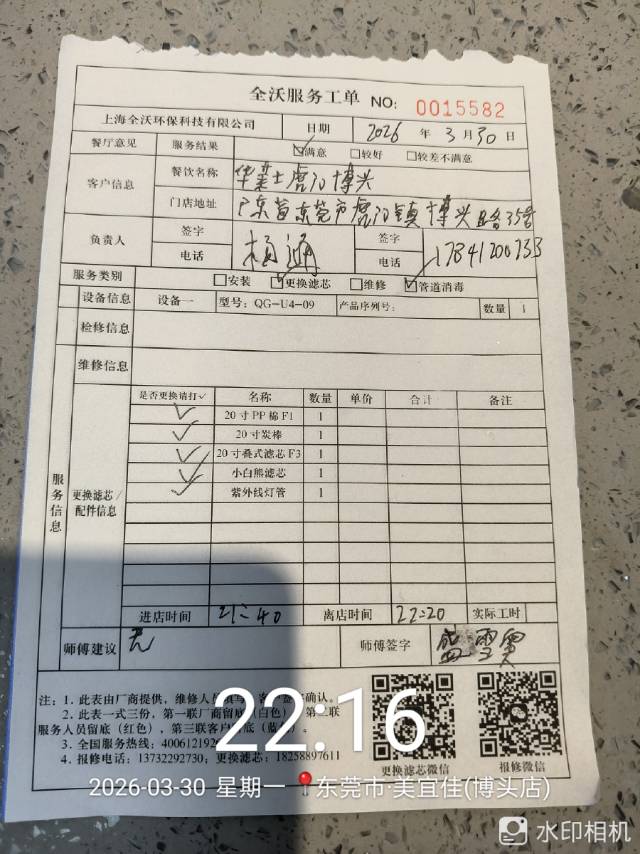 全沃服务工单 NO: 0015582
上海全沃环保科技有限公司 日期 2026 年 3 月 30 日
餐厅意见 服务结果 ☑满意 □较好 □较差不满意
客户信息 餐饮名称 华莱士虎门博兴
门店地址 广东省东莞市虎门镇博兴路35号
负责人 签字 杨 签字
电话 电话
服务类别 □安装 ☑更换滤芯 □维修 ☑管道消毒
设备信息 设备一 型号: QG-U4-09 产品序列号: 数量 1
检修信息
维修信息
服务信息
更换滤芯/配件信息
是否更换请打✓ 名称 数量 单价 合计 备注
✓ 20寸PP棉F1 1
✓ 20寸炭棒 1
✓ 20寸叠式滤芯F3 1
✓ 小白熊滤芯 1
✓ 紫外线灯管 1
进店时间 21:40 离店时间 22:20 实际工时
师傅建议 无 师傅签字 盛雪
注: 1. 此表由厂商提供, 维修人员填写, 客户签字确认。
2. 此表一式三份, 第一联厂商留底(白色), 第二联
服务人员留底(红色), 第三联客户留底(蓝色)。
3. 全国服务热线: 4006121926
4. 报修电话: 13732292730; 更换滤芯: 18258897611
更换滤芯微信 报修微信
22:16
2026-03-30 星期一 东莞市·美宜佳(博头店)
水印相机